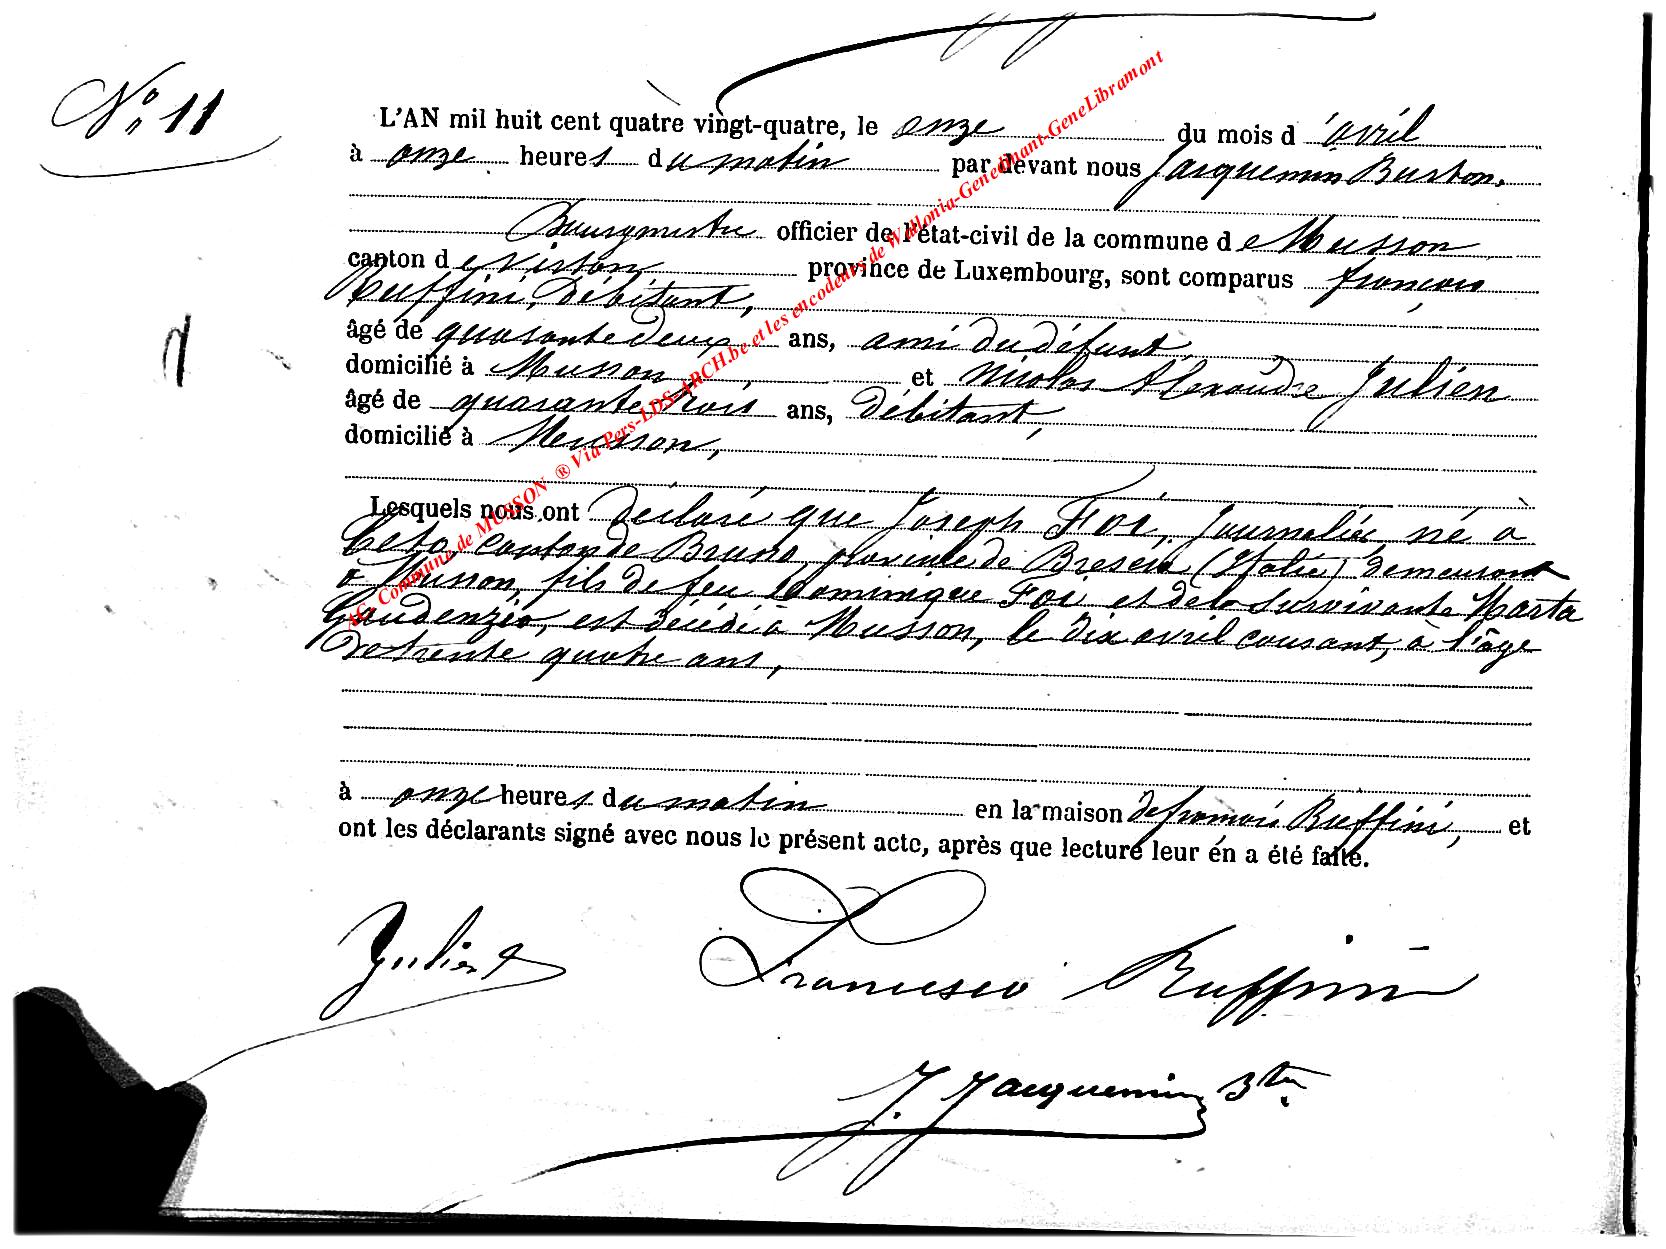 N° 11
L'AN mil huit cent quatre vingt-quatre, le onze du mois d'avril
à onze heures du matin par devant nous Jacquemin Burton,
Bourgmestre officier de l'état-civil de la commune de Musson
canton de Virton province de Luxembourg, sont comparus françois
Ruffini, débitant,
âgé de quarante deux ans, ami du défunt,
domicilié à Musson et Nicolas Alexandre Julien
âgé de quarante trois ans, débitant,
domicilié à Musson,
Lesquels nous ont déclaré que Joseph Foi, journalier, né à
Ceto, canton de Breno, province de Brescia (Italie) demeurant
à Musson, fils de feu Dominique Foi et de la survivante Marta
Gaudenzio, est décédé à Musson, le dix avril courant, à l'âge
de trente quatre ans,
à onze heures du matin en la maison de françois Ruffini, et
ont les déclarants signé avec nous le présent acte, après que lecture leur en a été faite.
Julien Francesco Ruffini
J. Jacquemin
AC. Commune de MUSSON ® Via Pers-LDS-ARCH.be et les encodeurs de Wallonia-Genedinant-GeneLibramont